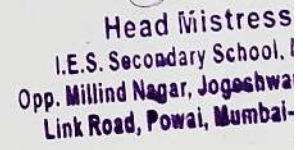 Head Mistress
I.E.S. Secondary School,
Opp. Millind Nagar,
Link Road, Powai, Mumbai-